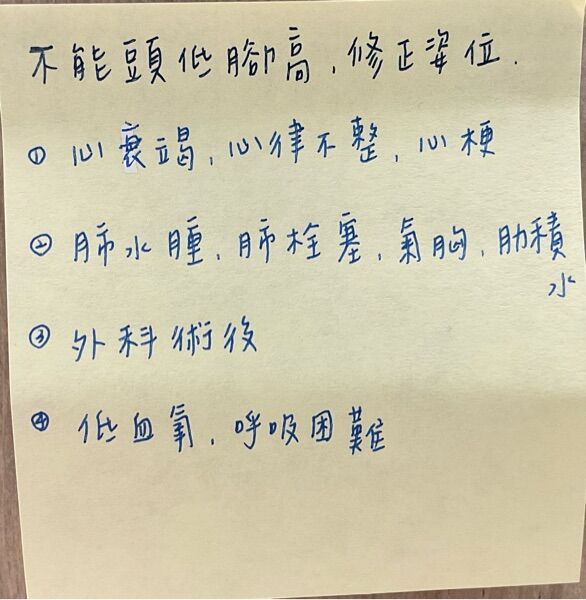 不能頭低腳高，修正姿位．
① 心衰竭，心律不整，心梗
② 肺水腫，肺栓塞，氣胸，肋積
水
③ 外科術後
④ 低血氧，呼吸困難